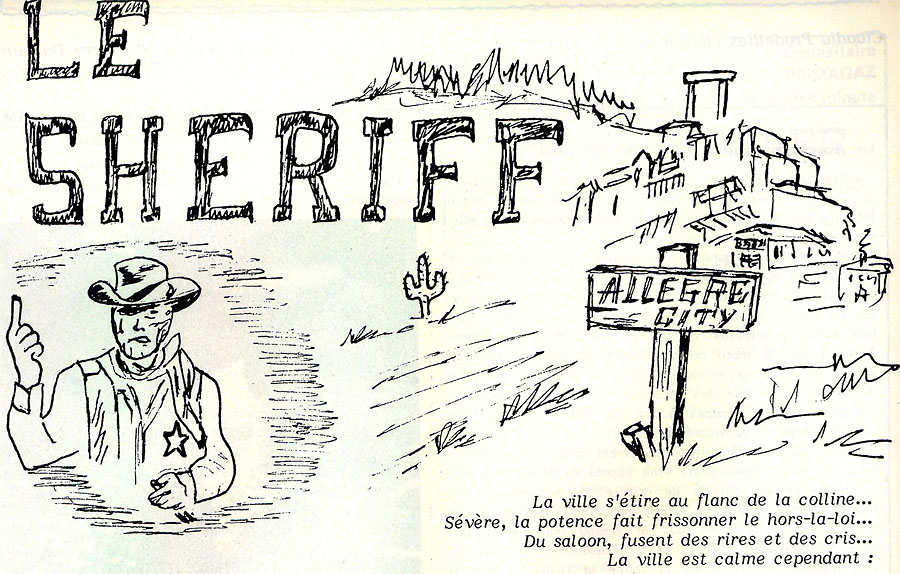 LE
SHERIFF
ALLEGRE
CITY
La ville s'étire au flanc de la colline...
Sévère, la potence fait frissonner le hors-la-loi...
Du saloon, fusent des rires et des cris...
La ville est calme cependant :